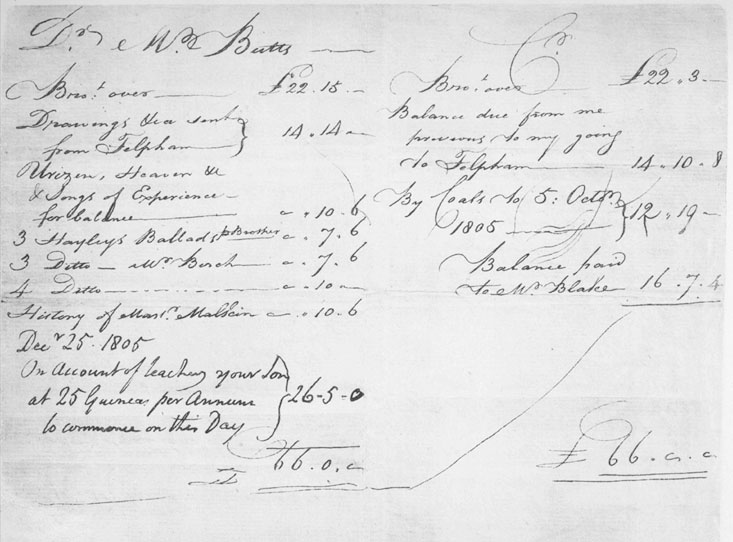 Dr Mr Butts
Brot over £22.15.-
Drawings &ca sent
from Felpham } 14.14.-
Urizen, Heaven &c
& Songs of Experience
for balance - . 10.6
3 Hayleys Ballads pr Brother - . 7.6
3 Ditto - Mr Birch - . 7.6
4 Ditto - . 10 -
History of Mastr Malkin - . 10.6
Decr 25. 1805
On Account of teaching your Son
at 25 Guineas per Annum
to commence on this Day } 26-5-0
£ 66.0.0
Cr
Brot over £22.3.-
Balance due from me
previous to my going
to Felpham 14.10.8
By Coals to 5: Octr
1805 } 12.19-
Balance paid
to Mr Blake 16.7.4
£ 66.0.0